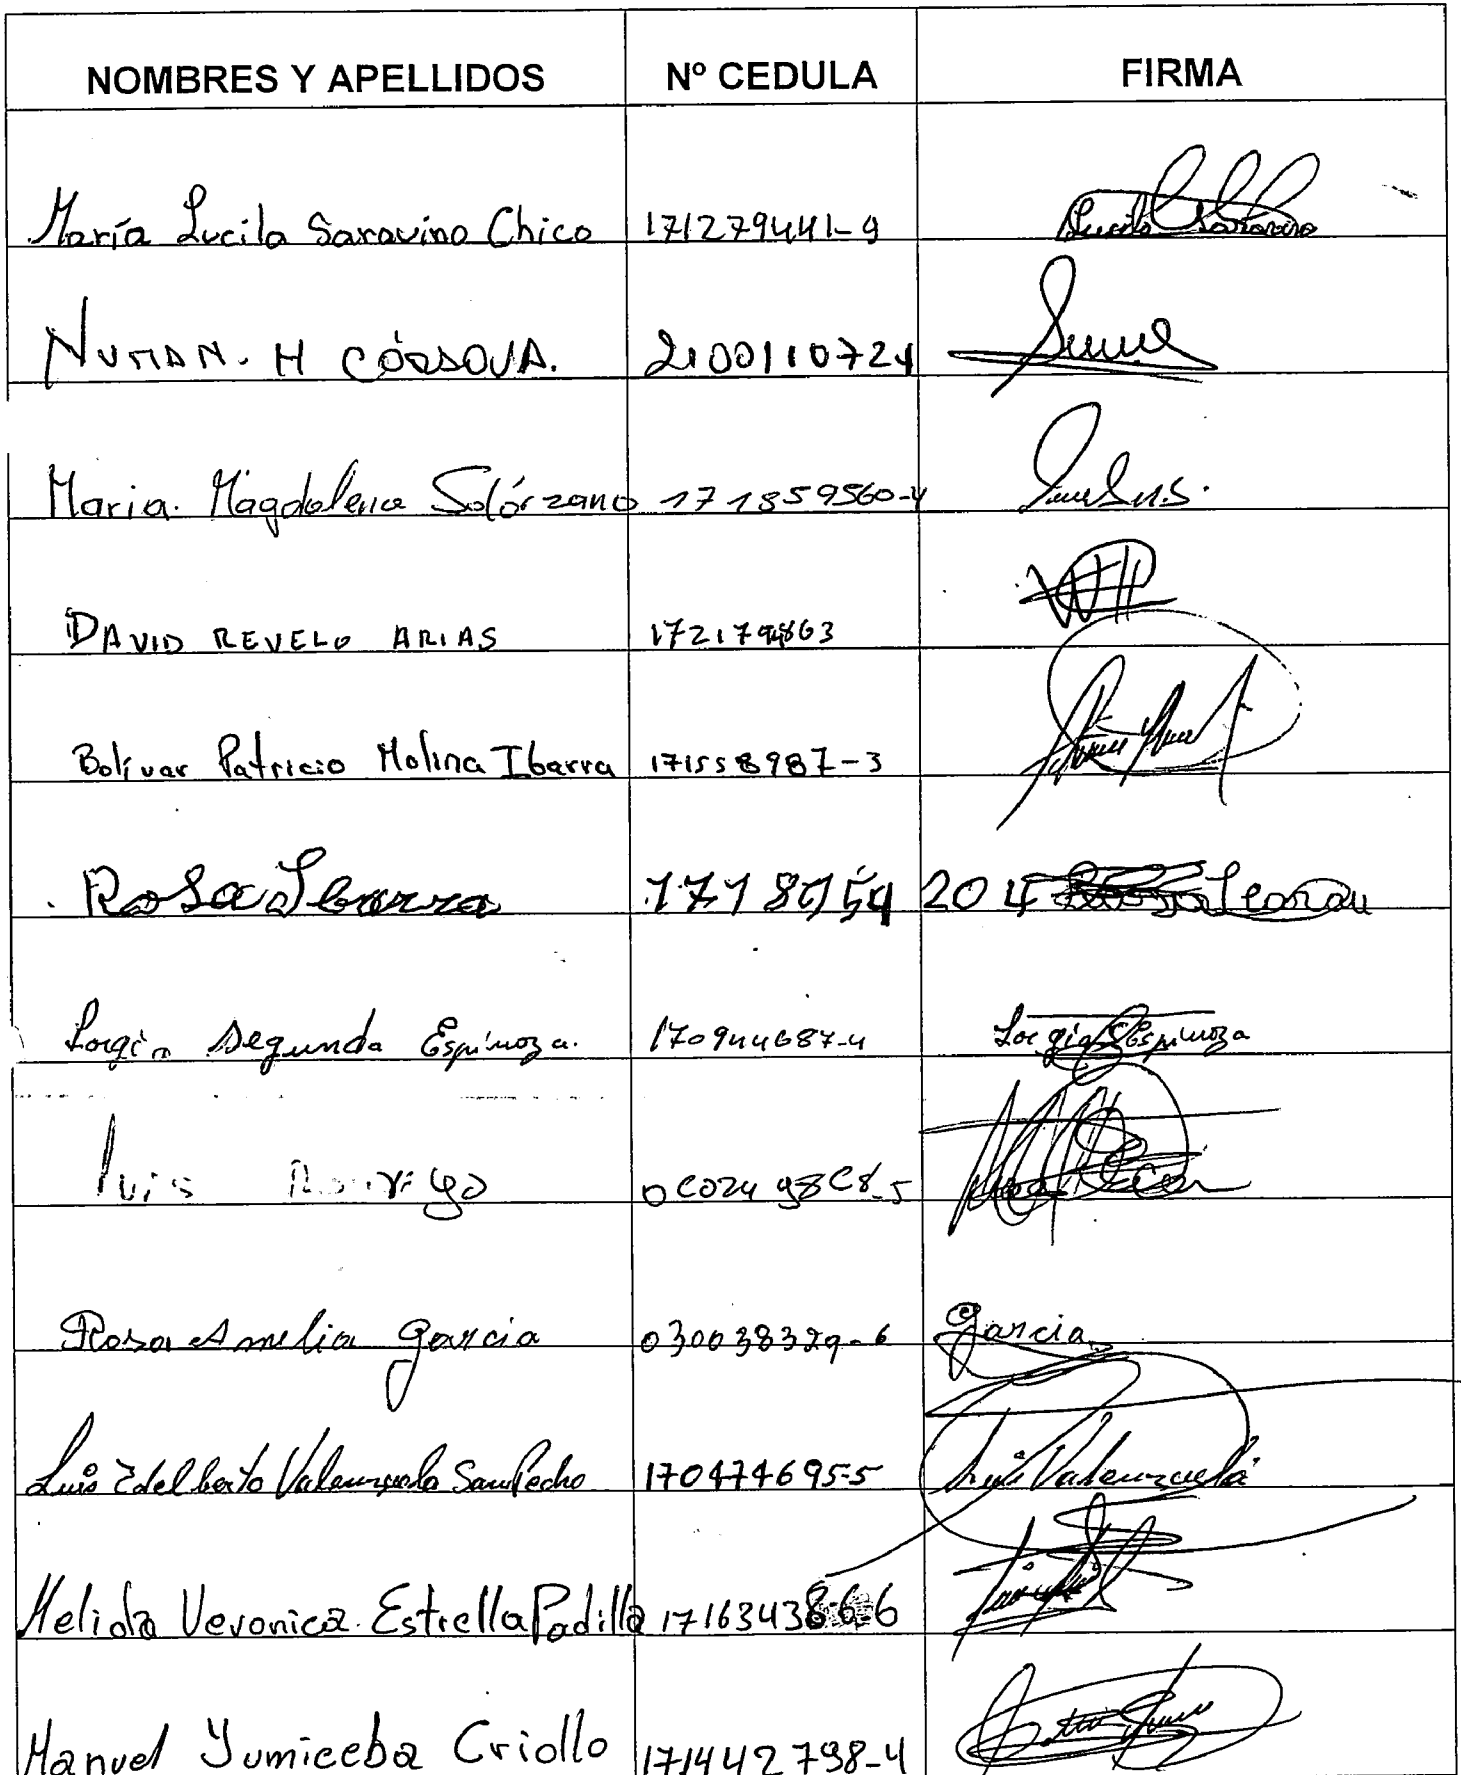 NOMBRES Y APELLIDOS Nº CEDULA FIRMA
María Lucila Saravino Chico 171279441-9 Lucila Saravino
NUMAN. H CÓRDOVA. 2100110724
Maria. Magdalena Solórzano 171859560-4
DAVID REVELO ARIAS
Bolívar Patricio Molina Ibarra 171558987-3
Rosa Ibarra 204
Lorgia Segunda Espinoza. 170944687-4 Lorgia Espinoza
Luis
Rosa Amelia Garcia 030038329-6 Garcia
Luis Edelberto Valenzuela San Pedro 170474695-5 Luis Valenzuela
Melida Veronica Estrella Padilla
Manuel Yumiceba Criollo 171442798-4